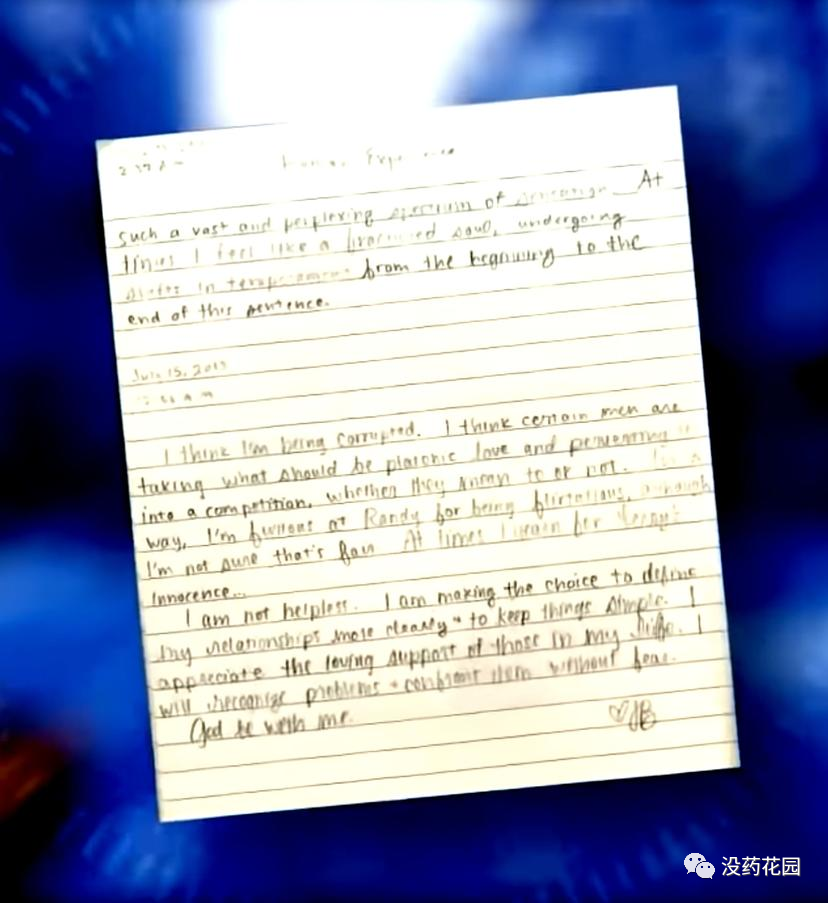 Human Experience
such a vast and perplexing spectrum of sensation. At
times I feel like a fractured soul, undergoing
shifts in temperament from the beginning to the
end of this sentence.
July 15, 201
I think I'm being corrupted. I think certain men are
taking what should be platonic love and perverting it
into a competition, whether they mean to or not. In a
way, I'm furious at Randy for being flirtatious, although
I'm not sure that's fair. At times I yearn for
innocence...
I am not helpless. I am making the choice to define
my relationships more clearly + to keep things simple. I
appreciate the loving support of those in my life. I
will recognize problems + confront them without fear.
God be with me.
♡JB
没药花园